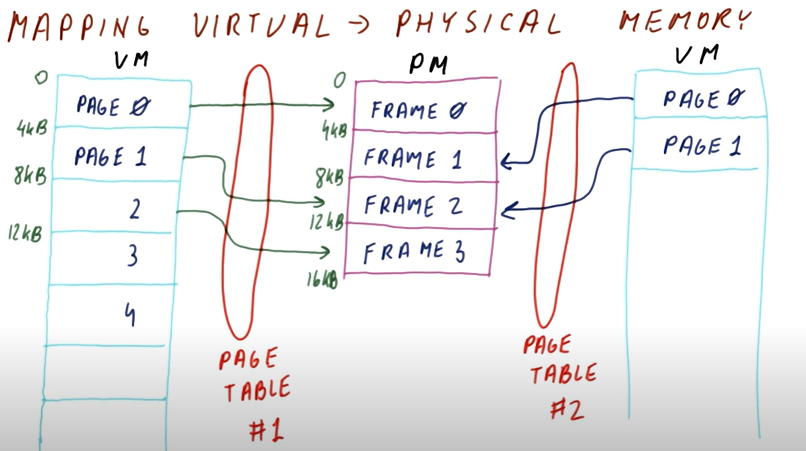 MAPPING VIRTUAL → PHYSICAL MEMORY
VM
0
PAGE 0
4kB
PAGE 1
8kB
2
12kB
3
4
PAGE
TABLE
#1
PM
0
FRAME 0
4kB
FRAME 1
8kB
FRAME 2
12kB
FRAME 3
16kB
VM
PAGE 0
PAGE 1
PAGE
TABLE
#2